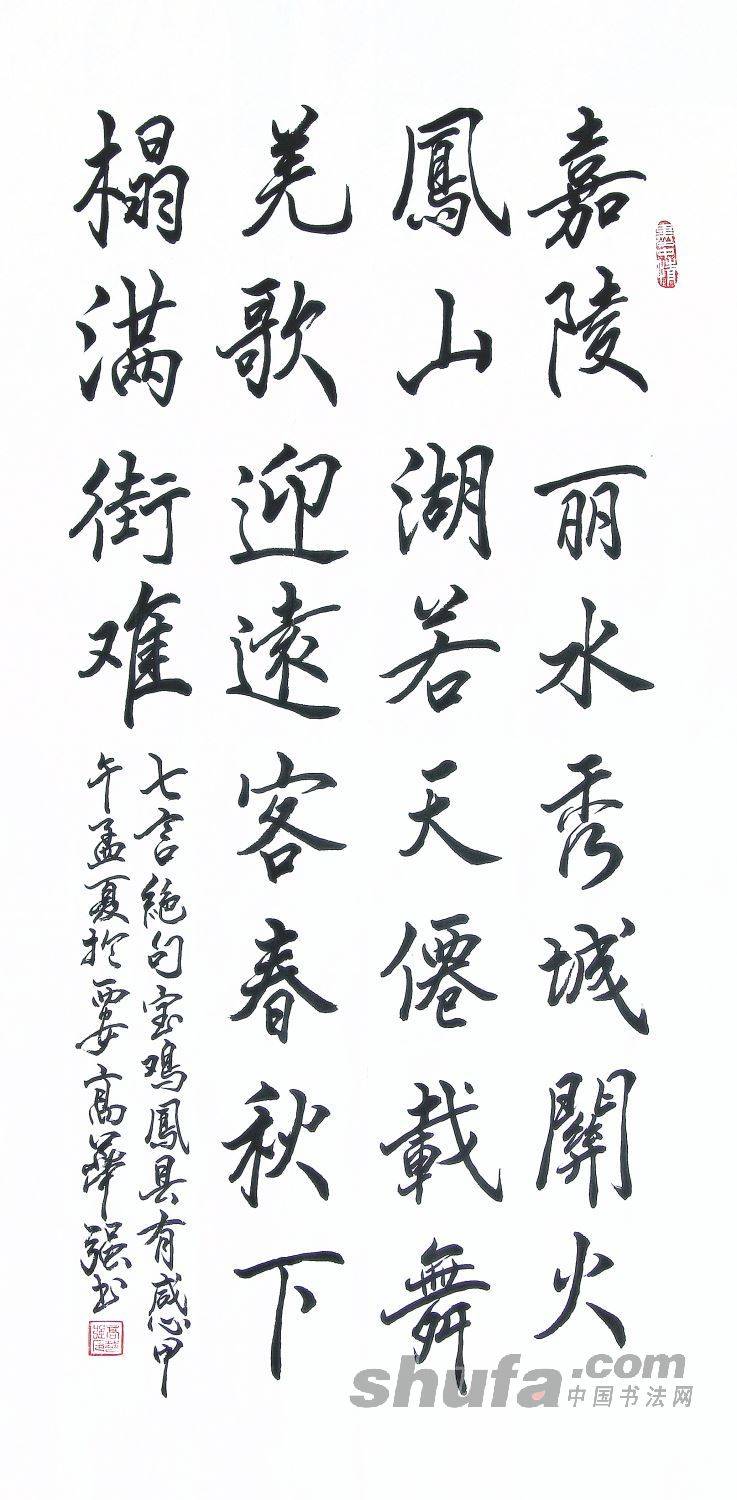 嘉陵丽水秀城關火
鳳山湖若天僊載舞
羌歌迎遠客春秋下
榻满街难
七言絶句宝鸡鳳县有感甲
午孟夏於西安高華强书
shufa.com
中国书法网